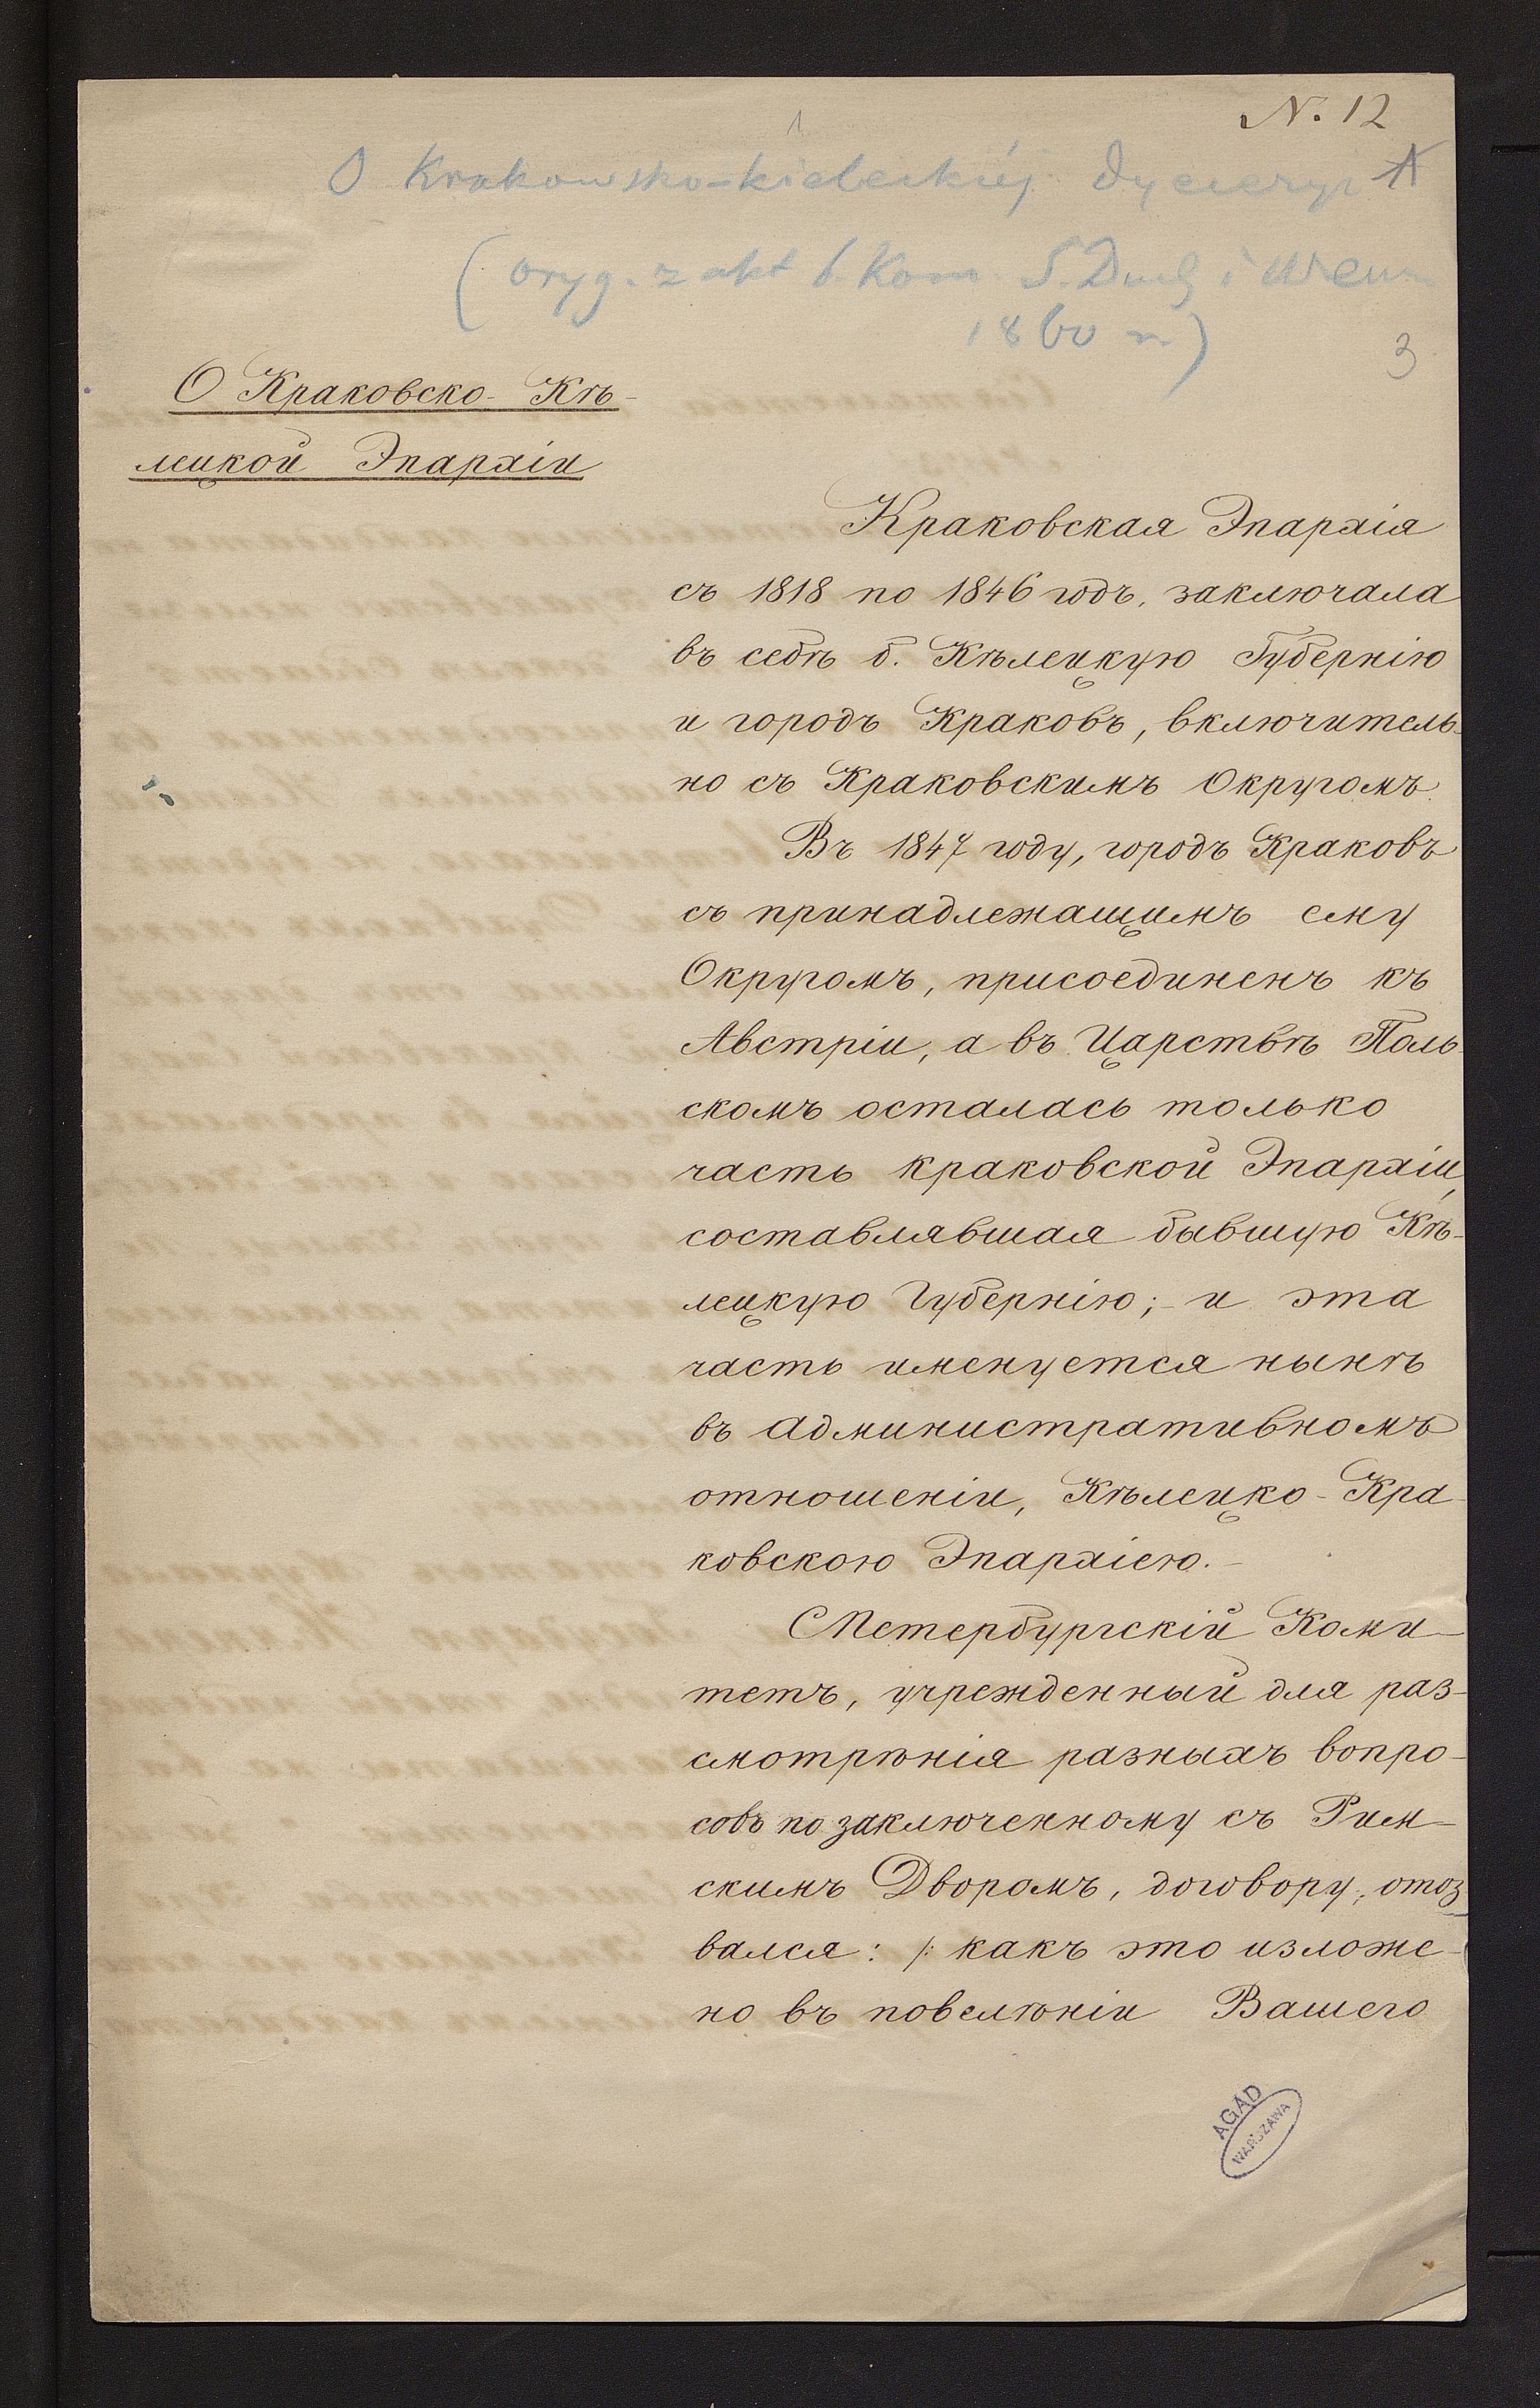 N. 12
1
O Krakowsko-kieleckiéj dyecezyi A
(oryg. z akt b. Kom. S. Duch i
1860 r)
3
О Краковско-Кѣ-
лецкой Эпархіи
Краковская Эпархія
съ 1818 по 1846 годъ, заключала
въ себѣ б. Кѣлецкую Губернію
и городъ Краковъ, включитель-
но съ Краковскимъ Округомъ.
Въ 1847 году, городъ Краковъ
съ принадлежащимъ ему
Округомъ, присоединенъ къ
Австріи, а въ Царствѣ Поль-
скомъ осталась только
часть краковской Эпархіи,
составлявшая бывшую Кѣ-
лецкую Губернію; - и эта
часть именуется нынѣ
въ административномъ
отношеніи, Кѣлецко-Кра-
ковскою Эпархіею. -
СПетербургскій Коми-
тетъ, учрежденный для раз-
смотрѣнія разныхъ вопро-
совъ по заключенному съ Рим-
скимъ Дворомъ, договору, отоз-
вался: /: какъ это изложе-
но въ повелѣніи Вашего
AGAD
WARSZAWA